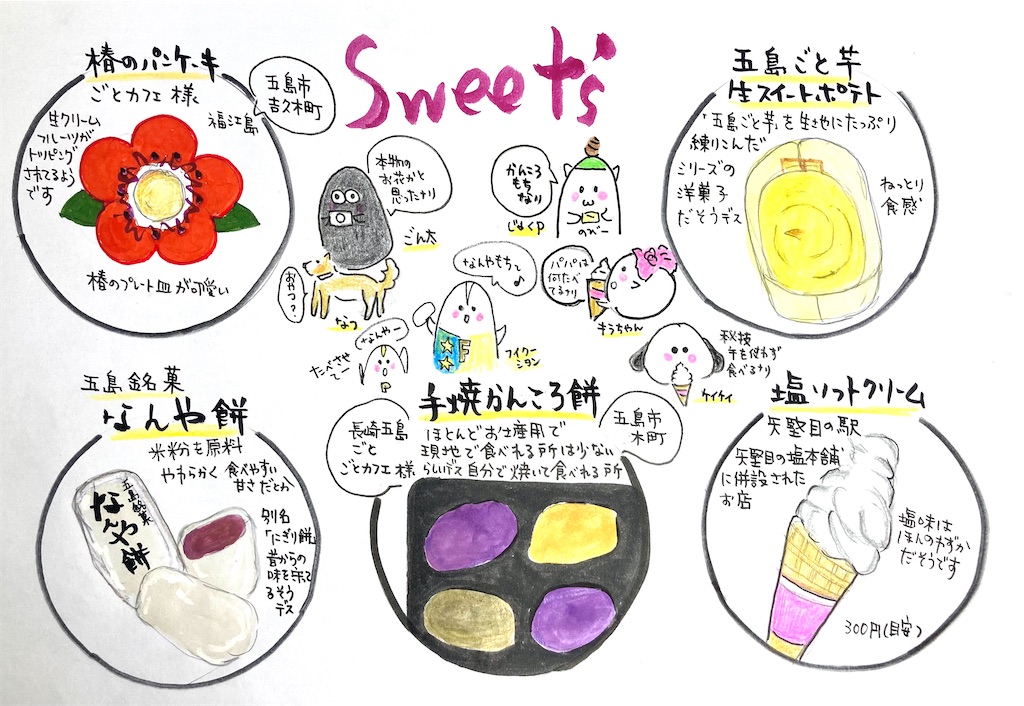 Sweet's
椿のパンケーキ
ごとカフェ様
五島市
吉久木町
福江島
生クリーム
フルーツが
トッピング
されてるよう
です
椿のプレート皿が可愛い
五島ごと芋
生スイートポテト
「五島ごと芋」を生地にたっぷり
練りこんだ
シリーズの
洋菓子
だそうデス
ねっとり
食感
本物の
お花かと
思ったナリ
ごん太
かんころ
もち
なり
じょくP
のべー
おやつ?
なつ
なんやもちて♪
パパは
何たべ
てるナリ
きうちゃん
なんやー
たべさせ
てー
P
F
フイクー
ション
秘技
手を使わず
食べるナリ
ケイケイ
五島銘菓
なんや餅
米粉を原料
やわらかく 食べやすい
甘さだとか
五島銘菓
なんや餅
別名
「にぎり餅」
昔からの
味を守って
るそう
デス
手焼かんころ餅
長崎五島
ごと
ごとカフェ様
五島市
木町
ほとんどお土産用で
現地で食べれる所は少ない
らしいデス自分で焼いて食べれる所
塩ソフトクリーム
矢堅目の駅
矢堅目の塩本舗
に併設された
お店
塩味は
ほんのわずか
だそうです
300円(目安)